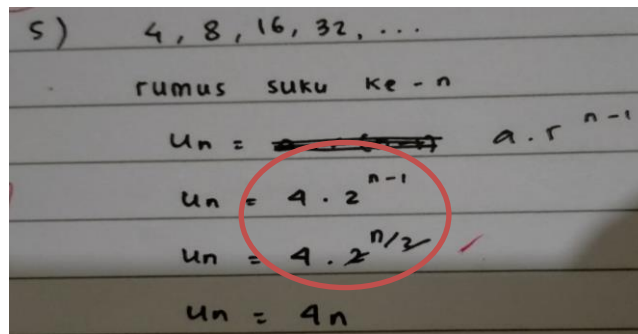 5) 4, 8, 16, 32, ...
rumus suku ke-n
Un = a.r^n-1
Un = 4.2^n-1
Un = 4.2^n/2
Un = 4n